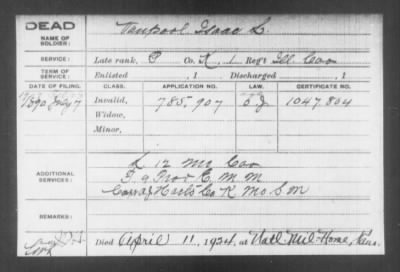 DEAD
NAME OF SOLDIER: Vanpool Isaac L.
SERVICE: Late rank, P Co. K, 1 Reg't Ill Cav
TERM OF SERVICE: Enlisted , 1 Discharged , 1
DATE OF FILING. CLASS. APPLICATION NO. LAW. CERTIFICATE NO.
1890 July 7 Invalid, 785.907 1047804
Widow,
Minor,
L 12 Mo Cav
ADDITIONAL SERVICES: F 9 Prov E. M M
Co K Mo S M
REMARKS:
Died April 11, 1924, at Natl Mil Home, Kans.